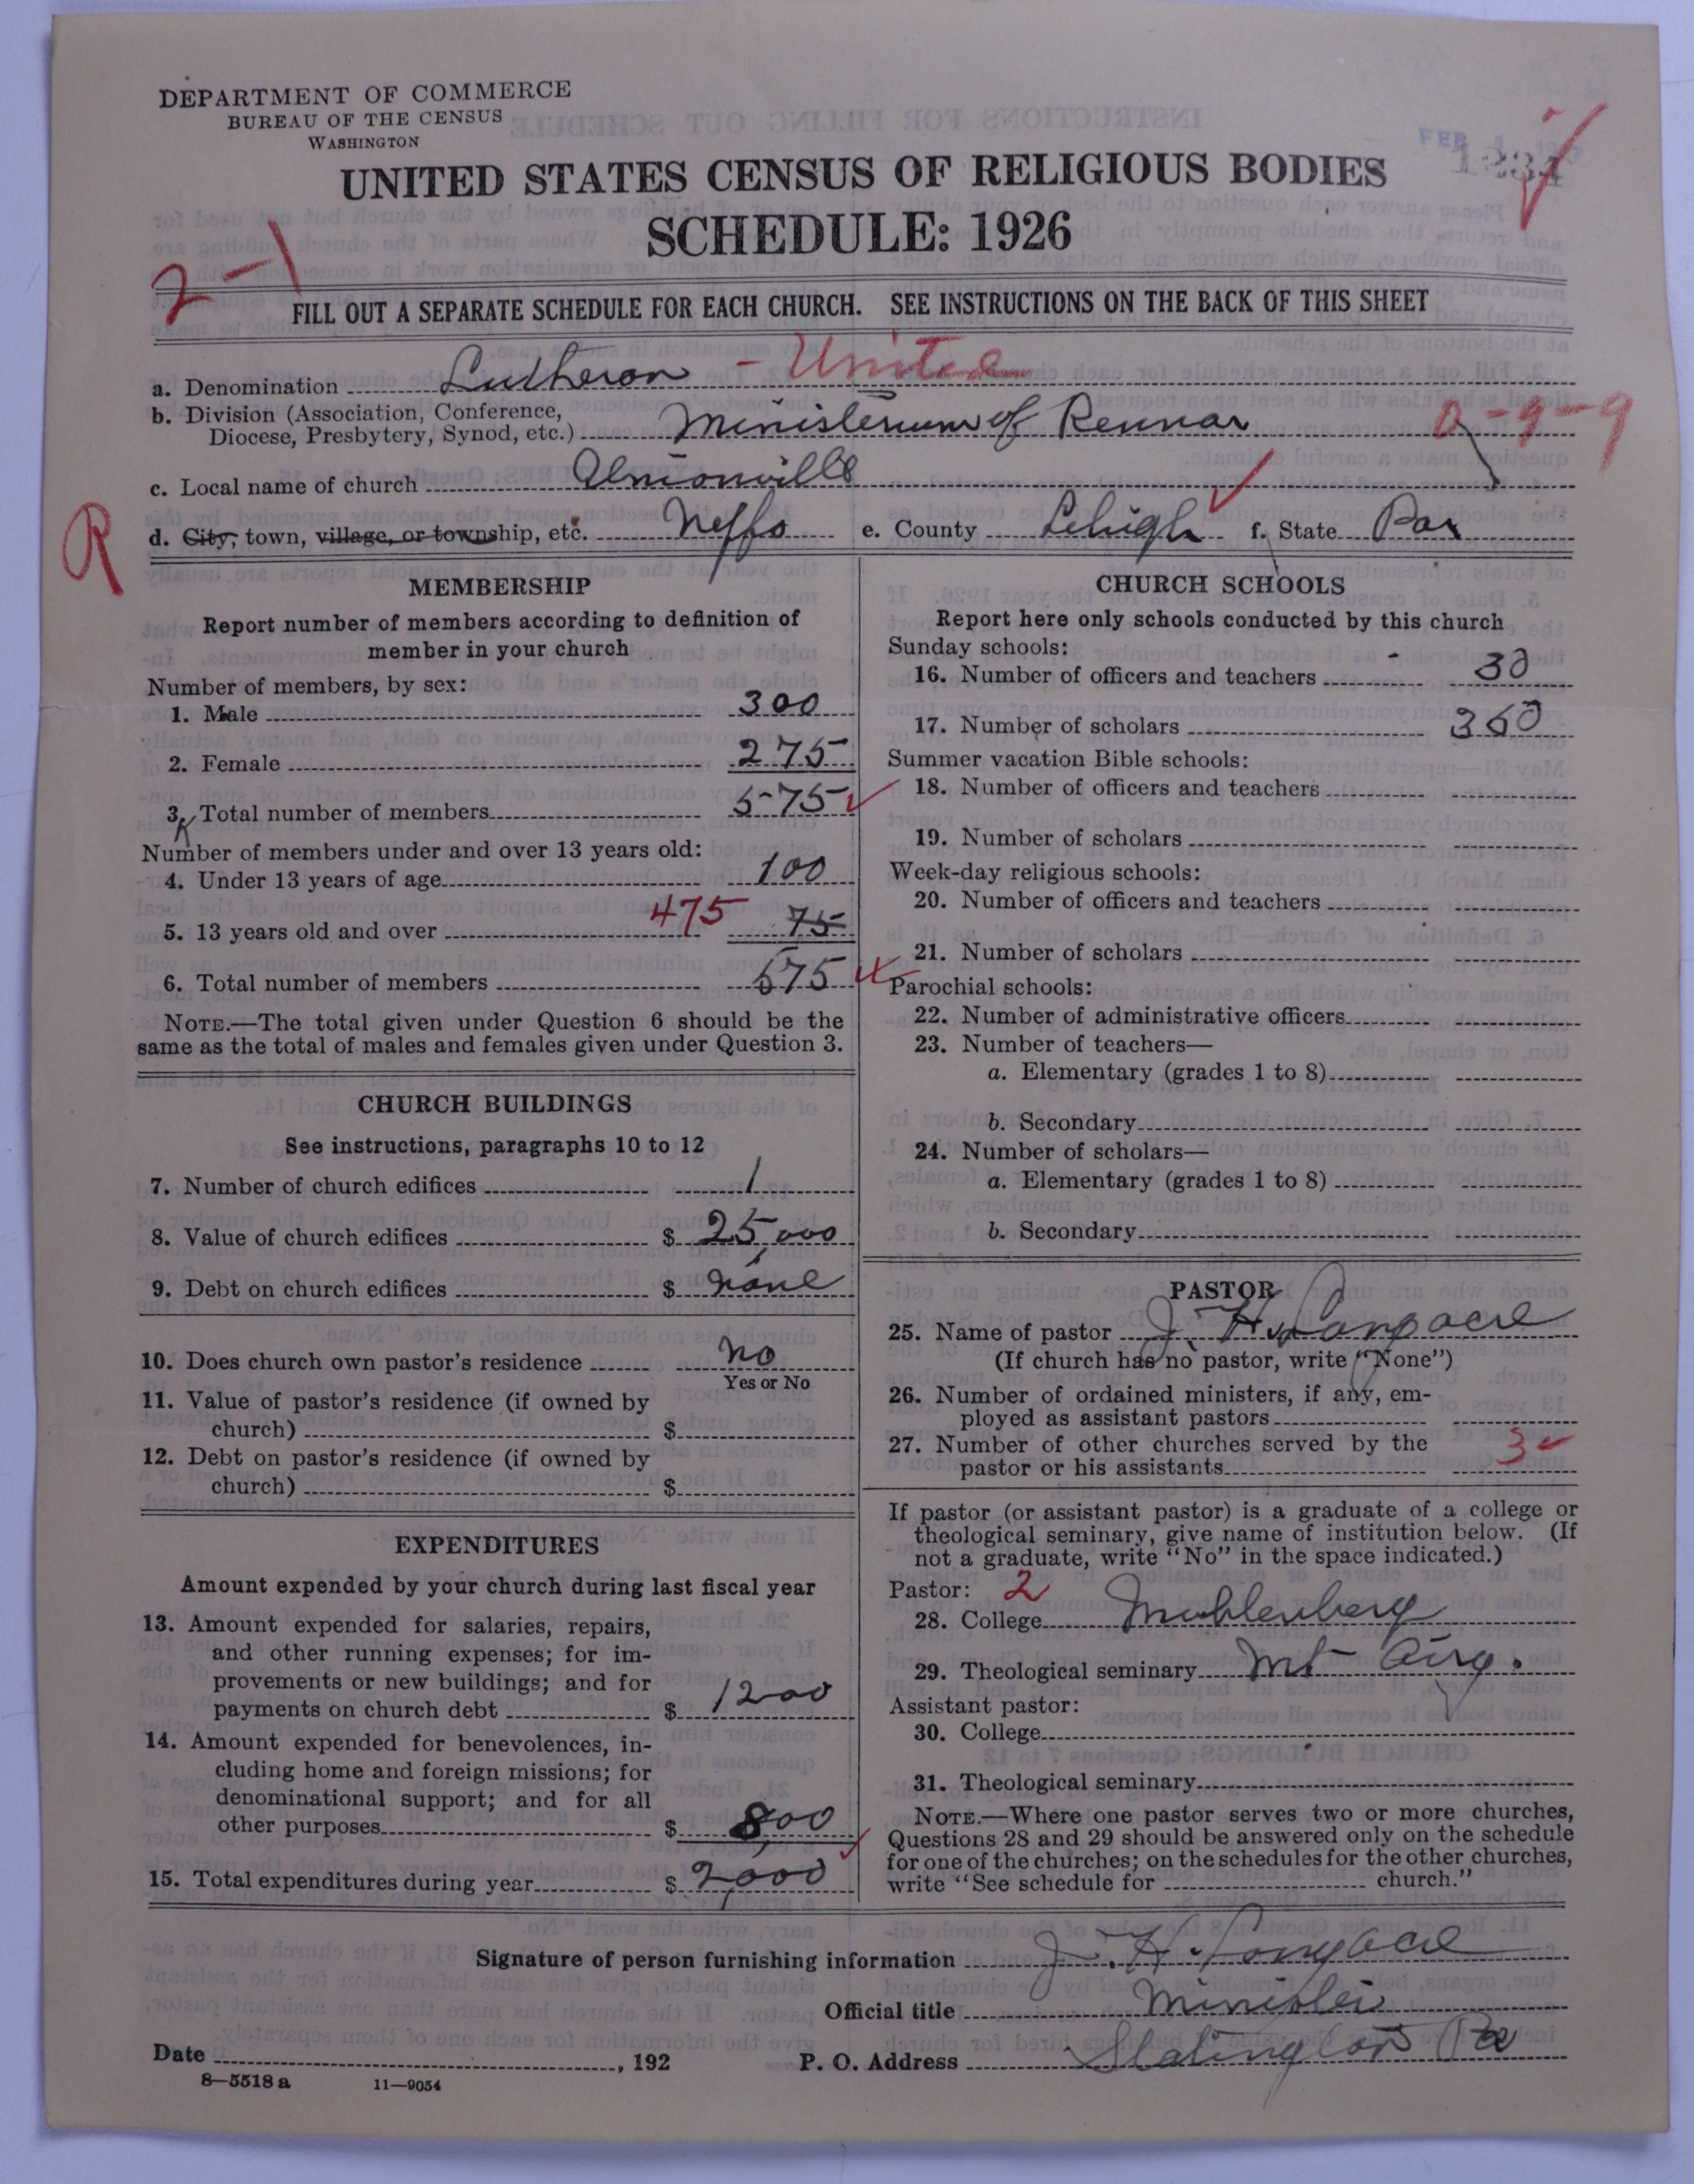 DEPARTMENT OF COMMERCE
BUREAU OF THE CENSUS
WASHINGTON
UNITED STATES CENSUS OF RELIGIOUS BODIES
SCHEDULE: 1926
2-1
FILL OUT A SEPARATE SCHEDULE FOR EACH CHURCH. SEE INSTRUCTIONS ON THE BACK OF THIS SHEET
a. Denomination Lutheran - United
b. Division (Association, Conference,
Diocese, Presbytery, Synod, etc.) Ministerium of 0-9-9
c. Local name of church
R
d. City, town, village, or township, etc. Neffs e. County Lehigh f. State Pa
MEMBERSHIP
Report number of members according to definition of
member in your church
Number of members, by sex:
1. Male 300
2. Female 275
3. Total number of members 575
Number of members under and over 13 years old:
4. Under 13 years of age 100
5. 13 years old and over 475 75
6. Total number of members 575
NOTE.—The total given under Question 6 should be the
same as the total of males and females given under Question 3.
CHURCH BUILDINGS
See instructions, paragraphs 10 to 12
7. Number of church edifices 1
8. Value of church edifices $ 25,000
9. Debt on church edifices $ none
10. Does church own pastor's residence no
Yes or No
11. Value of pastor's residence (if owned by
church) $
12. Debt on pastor's residence (if owned by
church) $
EXPENDITURES
Amount expended by your church during last fiscal year
13. Amount expended for salaries, repairs,
and other running expenses; for im-
provements or new buildings; and for
payments on church debt $ 1200
14. Amount expended for benevolences, in-
cluding home and foreign missions; for
denominational support; and for all
other purposes $ 800
15. Total expenditures during year $ 2,000
CHURCH SCHOOLS
Report here only schools conducted by this church
Sunday schools:
16. Number of officers and teachers 30
17. Number of scholars 360
Summer vacation Bible schools:
18. Number of officers and teachers
19. Number of scholars
Week-day religious schools:
20. Number of officers and teachers
21. Number of scholars
Parochial schools:
22. Number of administrative officers
23. Number of teachers—
a. Elementary (grades 1 to 8)
b. Secondary
24. Number of scholars—
a. Elementary (grades 1 to 8)
b. Secondary
PASTOR
25. Name of pastor J. H. Longacre
(If church has no pastor, write "None")
26. Number of ordained ministers, if any, em-
ployed as assistant pastors
27. Number of other churches served by the
pastor or his assistants 3
If pastor (or assistant pastor) is a graduate of a college or
theological seminary, give name of institution below. (If
not a graduate, write "No" in the space indicated.)
Pastor: 2
28. College Muhlenberg
29. Theological seminary Mt Airy.
Assistant pastor:
30. College
31. Theological seminary
NOTE.—Where one pastor serves two or more churches,
Questions 28 and 29 should be answered only on the schedule
for one of the churches; on the schedules for the other churches,
write "See schedule for church."
Signature of person furnishing information J. H. Longacre
Official title Minister
Date , 192 P. O. Address Slatington Pa
8-5518 a 11-9054